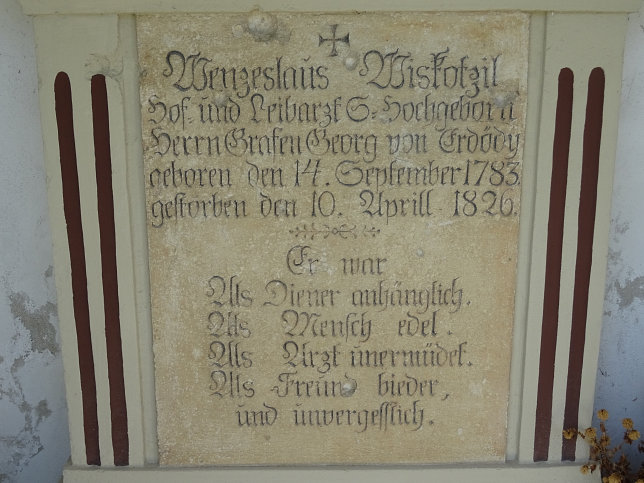 Wenzeslaus Wiskotzil
Hof- und Leibarzt S: Hochgeborn
Herrn Grafen Georg von Erdödy
geboren den 14. September 1783.
gestorben den 10. Aprill 1826.
Er war
Als Diener anhänglich.
Als Mensch edel.
Als Arzt unermüdet.
Als Freund bieder,
und unvergesslich.